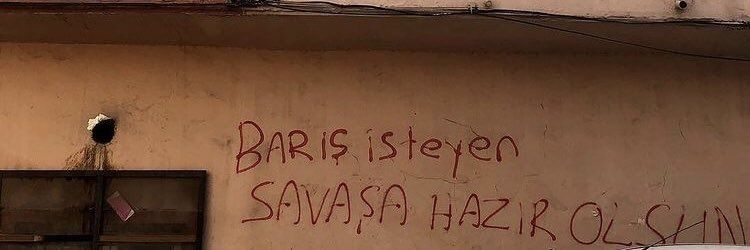 BARIŞ isteyen
SAVAŞA HAZIR OLSUN